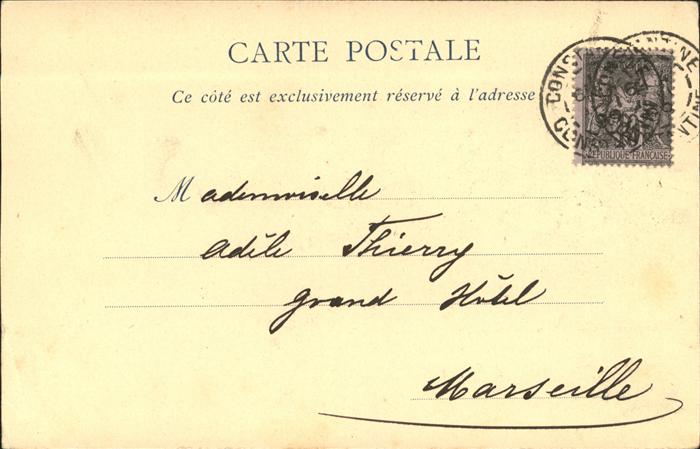 CARTE POSTALE
Ce côté est exclusivement réservé à l'adresse
CONSTANTINE
CONSTANTINE
REPUBLIQUE FRANÇAISE
Mademoiselle
Adèle Thierry
Grand Hôtel
Marseille